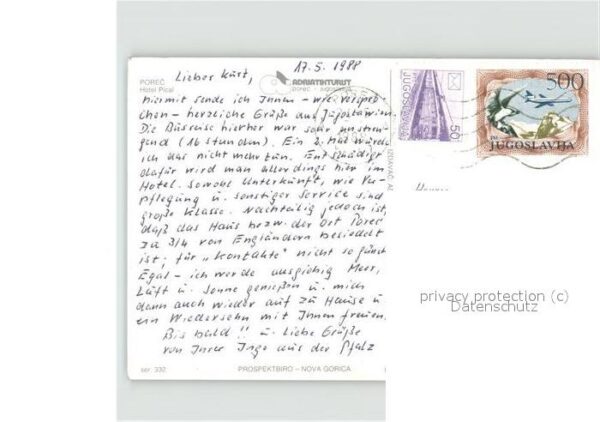 17.5.1988
POREČ
Hotel Pical
ADRIATINTURIST
poreč - jugoslavija
Lieber Kurt,
hiermit sende ich Ihnen - wie verspro-
chen - herzliche Grüße aus Jugoslawien.
Die Busreise hierher war sehr anstren-
gend (16 Stunden). Ein 2. Mal würde
ich das nicht mehr tun. Entschädigt
dafür wird man allerdings hier im
Hotel. Sowohl Unterkunft, wie Ver-
pflegung u. sonstiger Service sind
große Klasse. Nachteilig jedoch ist,
daß das Haus bezw. der Ort Porec
zu 3/4 von Engländern besiedelt
ist; für "Kontakte" nicht so günst
Egal - ich werde ausgiebig Meer,
Luft u. Sonne genießen u. mich
dann auch wieder auf zu Hause u
ein Wiedersehn mit Ihnen freuen.
Bis bald!! u. liebe Grüße
von Inger Inge aus der Pfalz
ser. 332
PROSPEKTBIRO - NOVA GORICA
JUGOSLAVIJA
50
500
JUGOSLAVIJA
IZDAVAČ
privacy protection (c)
Datenschutz